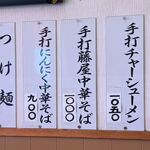 手打チャーシューメン
一〇五〇
手打藤屋中華そば
一〇〇〇
手打にんにく中華そば
九〇〇
つけ麺